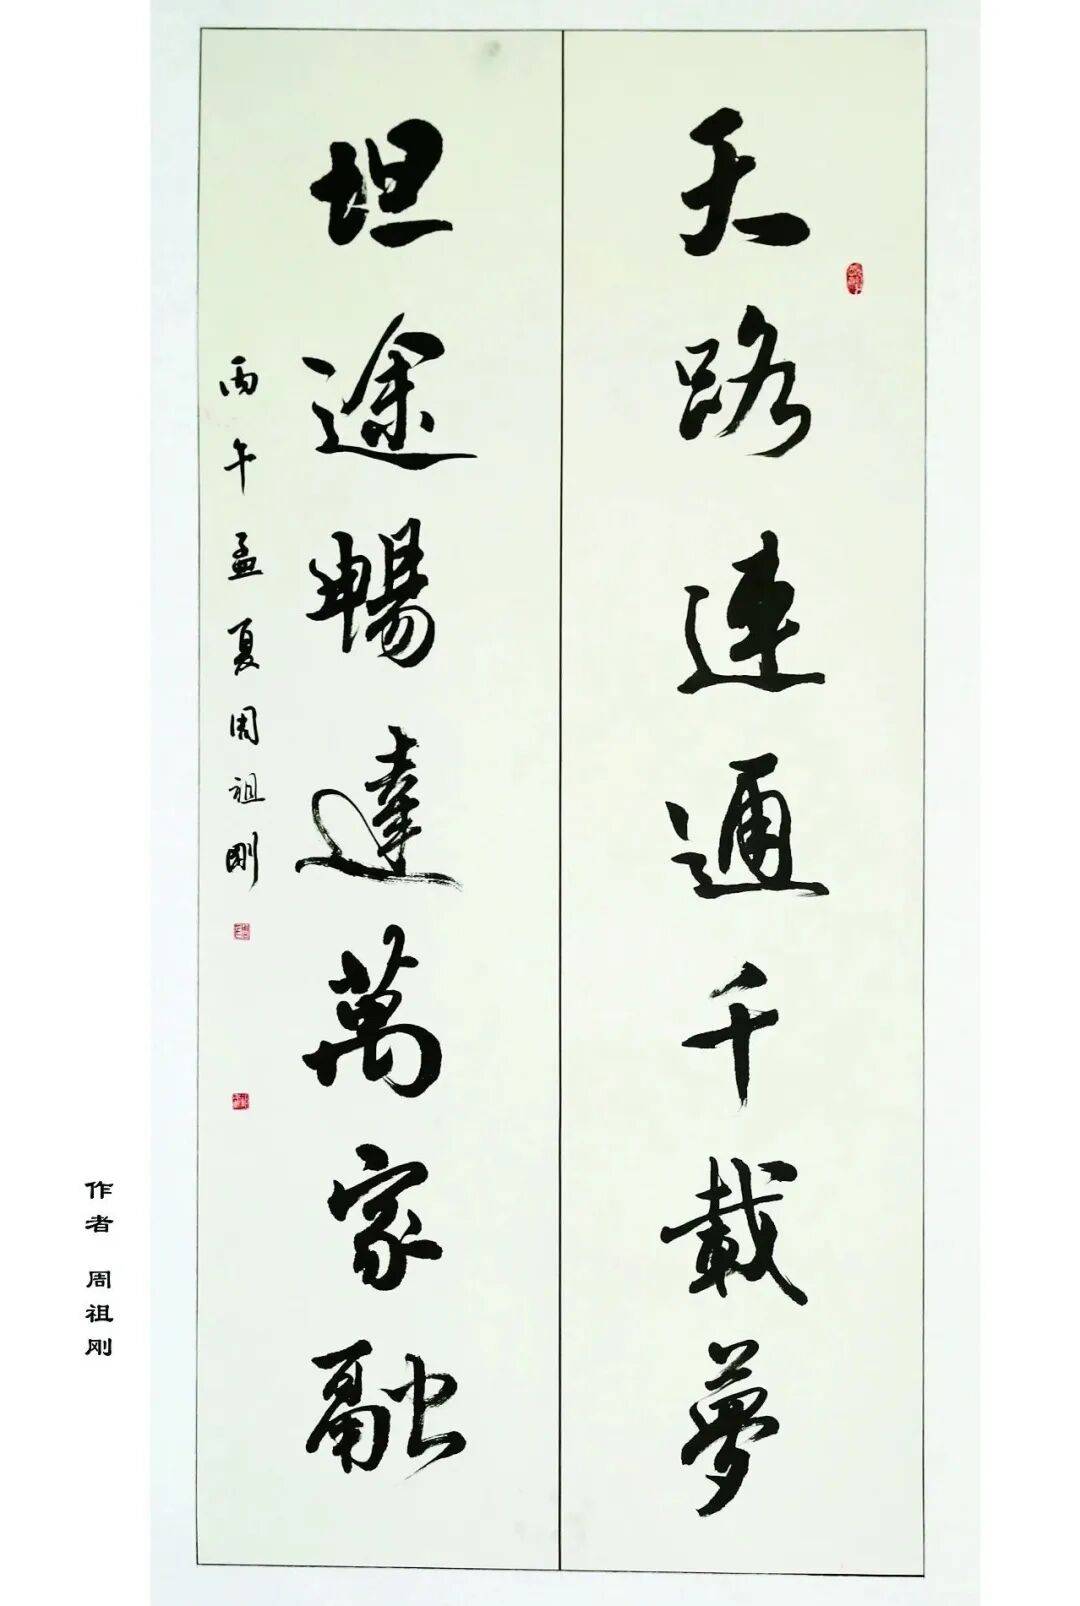 天路連通千載夢
坦途暢達萬家融
丙午孟夏周祖剛
作者 周祖刚